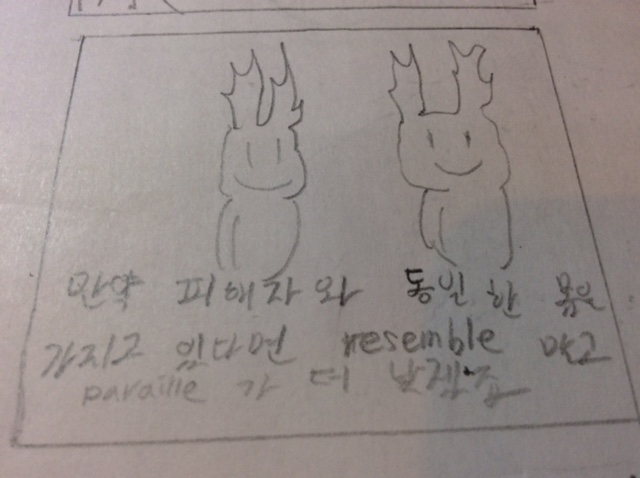 만약 피해자와 동일한 몸을
가지고 있다면 resemble 말고
paraille 가 더 낫겠죠